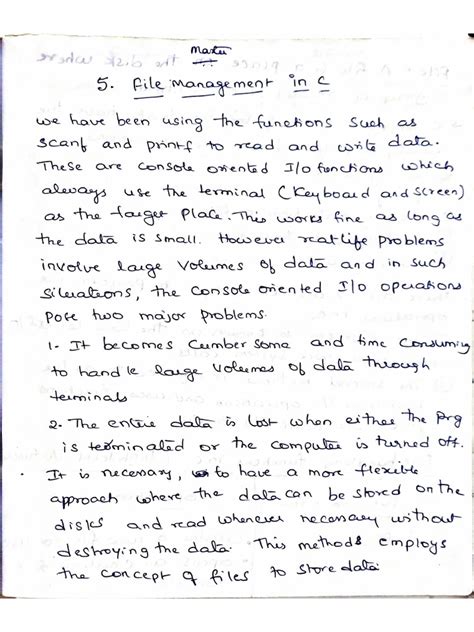 5. File Management in C
we have been using the functions such as
scanf and printf to read and write data.
These are console oriented I/o functions which
always use the terminal (Keyboard and screen)
as the target place. This works fine as long as
the data is small. However real life problems
involve large volumes of data and in such
situations, the console oriented I/o operations
pose two major problems.
1. It becomes cumber some and time consuming
to handle large volumes of data through
terminals
2. The entire data is lost when either the prg
is terminated or the computer is turned off.
It is necessary, to have a more flexible
approach where the data can be stored on the
disks and read whenever necessary without
destroying the data. This methods employs
the concept of files to store data.